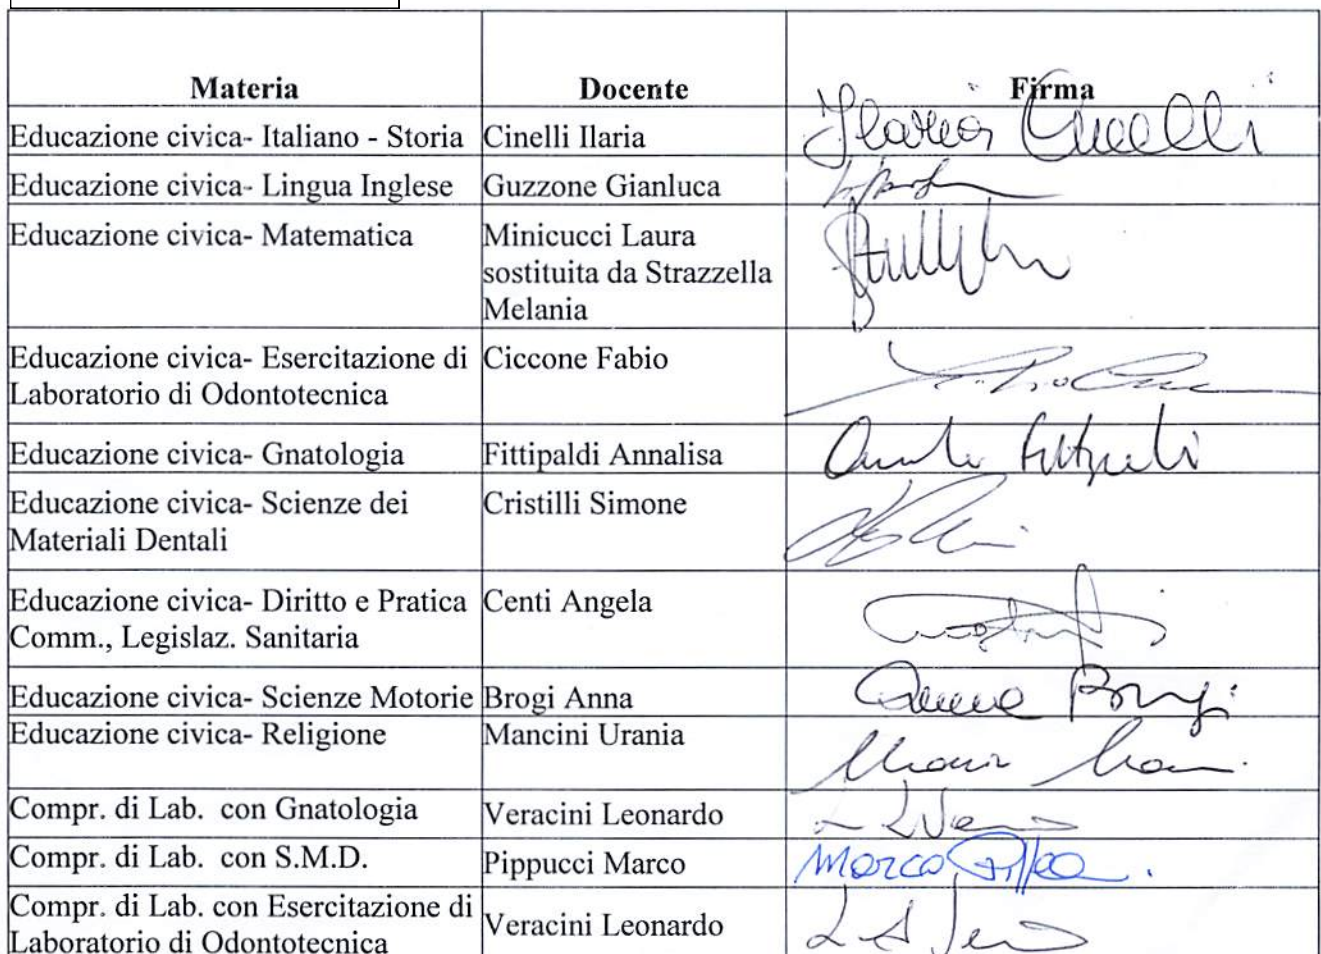 Materia Docente Firma
Educazione civica- Italiano - Storia Cinelli Ilaria Ilaria Cinelli
Educazione civica- Lingua Inglese Guzzone Gianluca
Educazione civica- Matematica Minicucci Laura
sostituita da Strazzella
Melania
Educazione civica- Esercitazione di Ciccone Fabio
Laboratorio di Odontotecnica
Educazione civica- Gnatologia Fittipaldi Annalisa
Educazione civica- Scienze dei Cristilli Simone
Materiali Dentali
Educazione civica- Diritto e Pratica Centi Angela
Comm., Legislaz. Sanitaria
Educazione civica- Scienze Motorie Brogi Anna Anna Brogi
Educazione civica- Religione Mancini Urania
Compr. di Lab. con Gnatologia Veracini Leonardo
Compr. di Lab. con S.M.D. Pippucci Marco Marco
Compr. di Lab. con Esercitazione di Veracini Leonardo
Laboratorio di Odontotecnica